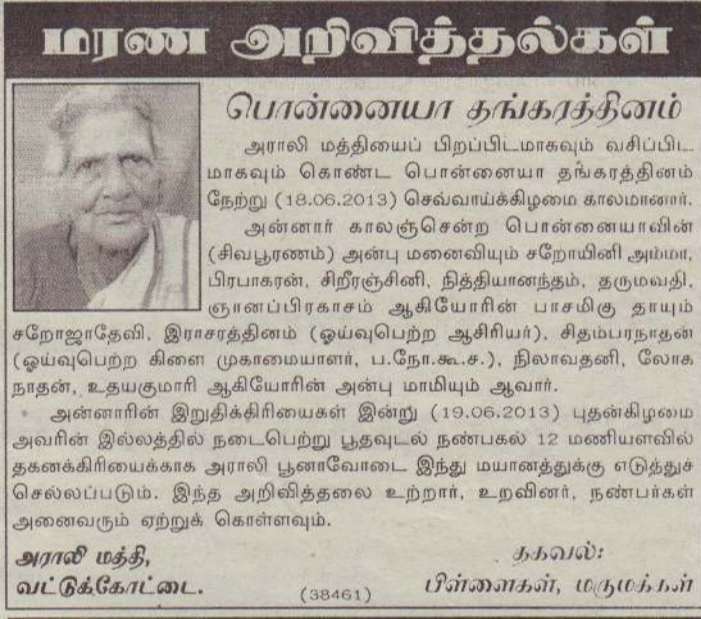 மரண அறிவித்தல்கள்
பொன்னையா தங்கரத்தினம்
அராலி மத்தியைப் பிறப்பிடமாகவும் வசிப்பிட
மாகவும் கொண்ட பொன்னையா தங்கரத்தினம்
நேற்று (18.06.2013) செவ்வாய்க்கிழமை காலமானார்.
அன்னார் காலஞ்சென்ற பொன்னையாவின்
(சிவபூரணம்) அன்பு மனைவியும் சறோயினி அம்மா,
பிரபாகரன், சிறீரஞ்சினி, நித்தியானந்தம், தருமவதி,
ஞானப்பிரகாசம் ஆகியோரின் பாசமிகு தாயும்
சறோஜாதேவி, இராசரத்தினம் (ஓய்வுபெற்ற ஆசிரியர்), சிதம்பரநாதன்
(ஓய்வுபெற்ற கிளை முகாமையாளர், ப.நோ.கூ.ச.), நிலாவதனி, லோக
நாதன், உதயகுமாரி ஆகியோரின் அன்பு மாமியும் ஆவார்.
அன்னாரின் இறுதிக்கிரியைகள் இன்று (19.06.2013) புதன்கிழமை
அவரின் இல்லத்தில் நடைபெற்று பூதவுடல் நண்பகல் 12 மணியளவில்
தகனக்கிரியைக்காக அராலி பூனாவோடை இந்து மயானத்துக்கு எடுத்துச்
செல்லப்படும். இந்த அறிவித்தலை உற்றார், உறவினர், நண்பர்கள்
அனைவரும் ஏற்றுக் கொள்ளவும்.
அராலி மத்தி,
வட்டுக்கோட்டை.
(38461)
தகவல்:
பிள்ளைகள், மருமக்கள்